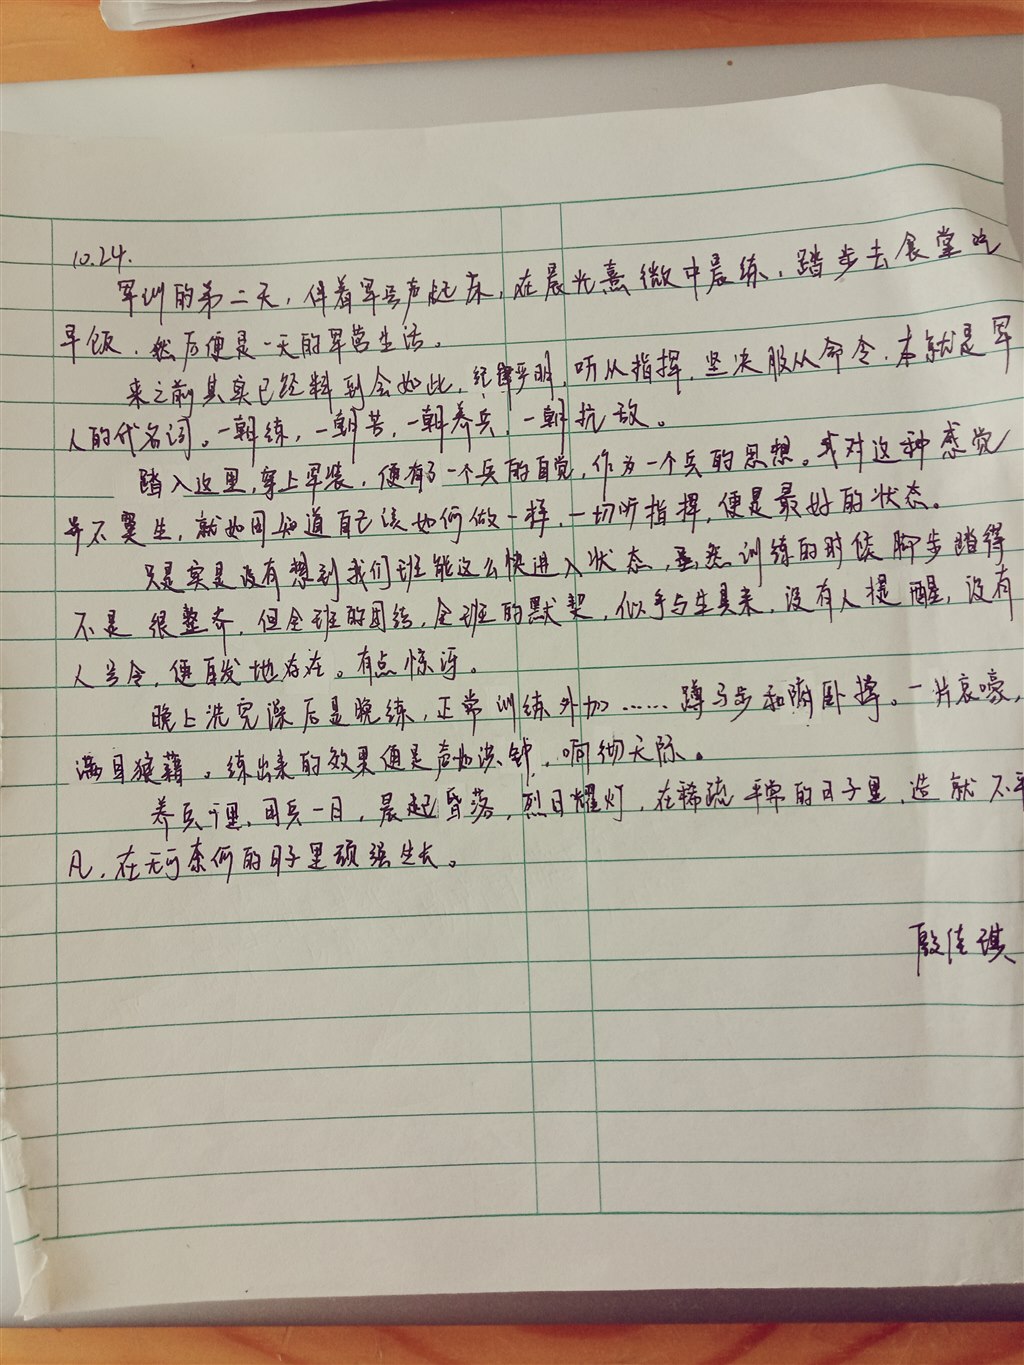 10.24.
军训的第二天，伴着军号声起床，在晨光熹微中晨练，踏步去食堂吃
早饭，然后便是一天的军营生活。
来之前其实已经料到会如此，纪律严明，听从指挥，坚决服从命令，本就是军
人的代名词。一朝练，一朝苦，一朝养兵，一朝抗敌。
踏入这里，穿上军装，便有了一个兵的自觉，作为一个兵的思想。我对这种感觉
并不陌生，就如同知道自己该如何做一样，一切听指挥，便是最好的状态。
只是实是没有想到我们班能这么快进入状态，虽然训练的时候脚步踏得
不是很整齐，但全班的团结，全班的默契，似乎与生具来，没有人提醒，没有
人号令，便自发地存在。有点惊讶。
晚上洗完澡后是晚练，正常训练外加……蹲马步和俯卧撑。一片哀嚎，
满目狼藉。练出来的效果便是声如洪钟，响彻天际。
养兵千里，用兵一日，晨起昏落，烈日耀灯，在稀疏平常的日子里，造就不平
凡，在无可奈何的日子里顽强生长。
殷佳琪